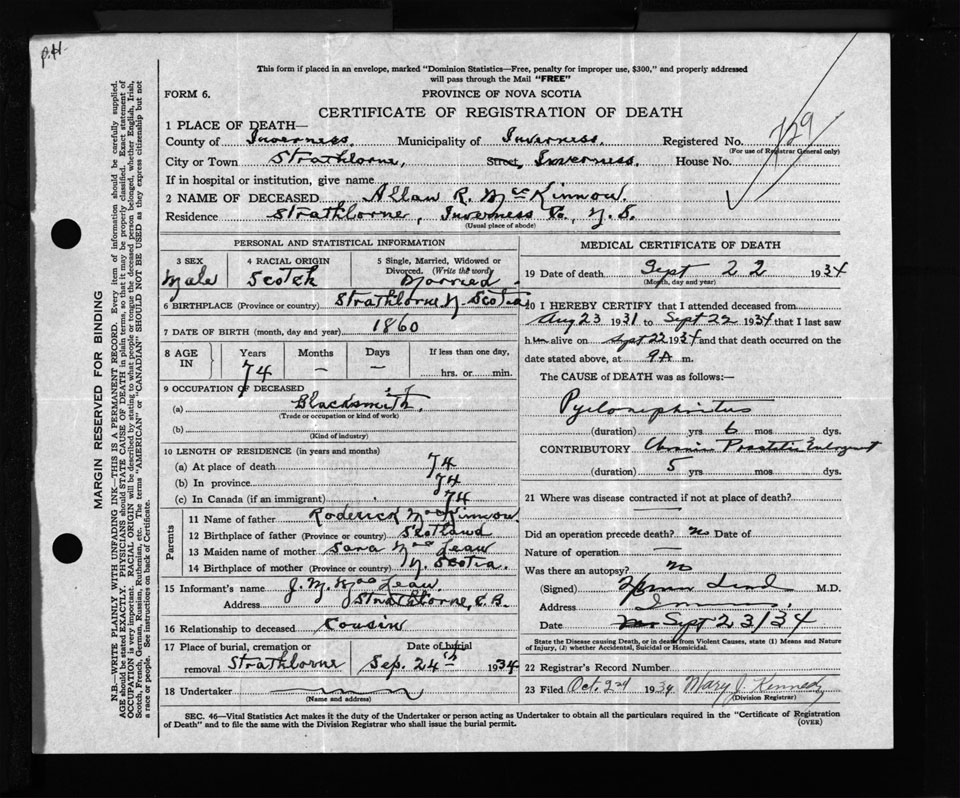 p.H.
This form if placed in an envelope, marked "Dominion Statistics—Free, penalty for improper use, $300," and properly addressed
will pass through the Mail "FREE"
FORM 6. PROVINCE OF NOVA SCOTIA
CERTIFICATE OF REGISTRATION OF DEATH
1 PLACE OF DEATH—
County of Inverness. Municipality of Inverness. Registered No. 729
(For use of Registrar General only)
City or Town Strathlorne, Street, Inverness. House No.
If in hospital or institution, give name
2 NAME OF DECEASED Allan R. McKinnon.
Residence Strathlorne, Inverness Co, N.S.
(Usual place of abode)
PERSONAL AND STATISTICAL INFORMATION
3 SEX 4 RACIAL ORIGIN 5 Single, Married, Widowed or
Divorced. (Write the word)
Male Scotch Married
6 BIRTHPLACE (Province or country) Strathlorne N. Scotia
7 DATE OF BIRTH (month, day and year) 1860
8 AGE IN Years Months Days If less than one day,
74 — — hrs. or min.
9 OCCUPATION OF DECEASED
(a) Blacksmith.
(Trade or occupation or kind of work)
(b)
(Kind of industry)
10 LENGTH OF RESIDENCE (in years and months)
(a) At place of death 74
(b) In province 74
(c) In Canada (if an immigrant) 74
Parents
11 Name of father Roderick MacKinnon.
12 Birthplace of father (Province or country) Scotland
13 Maiden name of mother Sara MacLean
14 Birthplace of mother (Province or country) N. Scotia.
15 Informant's name J. M. MacLean.
Address Strathlorne, C.B.
16 Relationship to deceased Cousin
17 Place of burial, cremation or Date of burial
removal Strathlorne Sep. 24th 1934
18 Undertaker
(Name and address)
MEDICAL CERTIFICATE OF DEATH
19 Date of death Sept 22 1934
(Month, day and year)
20 I HEREBY CERTIFY that I attended deceased from
Aug 23 1931 to Sept 22 1934 that I last saw
him alive on Sept 22 1934 and that death occurred on the
date stated above, at 9 A m.
The CAUSE of DEATH was as follows:—
Pyelonephritis
(duration) yrs 6 mos dys.
CONTRIBUTORY Chronic Prostatic Enlargment
(duration) 5 yrs mos dys.
21 Where was disease contracted if not at place of death?
—
Did an operation precede death? no Date of
Nature of operation —
Was there an autopsy? no
(Signed) M.D.
Address
Date Sept 23/34
State the Disease causing Death, or in death from Violent Causes, state (1) Means and Nature
of Injury, (2) whether Accidental, Suicidal or Homicidal.
22 Registrar's Record Number
23 Filed Oct. 2nd 1934 Mary J. Kennedy
(Division Registrar)
SEC. 46—Vital Statistics Act makes it the duty of the Undertaker or person acting as Undertaker to obtain all the particulars required in the "Certificate of Registration
of Death" and to file the same with the Division Registrar who shall issue the burial permit. (OVER)
MARGIN RESERVED FOR BINDING
N.B.—WRITE PLAINLY WITH UNFADING INK—THIS IS A PERMANENT RECORD. Every item of information should be carefully supplied.
AGE should be stated EXACTLY. PHYSICIANS should STATE CAUSE OF DEATH in plain terms, so that it may be properly classified. Exact statement of
OCCUPATION is very important. RACIAL ORIGIN will be described by stating to what people or tongue the deceased person belonged, whether English, Irish,
Scotch, French, German, Russian, Ruthenian, etc. The terms "AMERICAN" or "CANADIAN" SHOULD NOT BE USED as they express citizenship but not
a race or people. See instructions on back of Certificate.